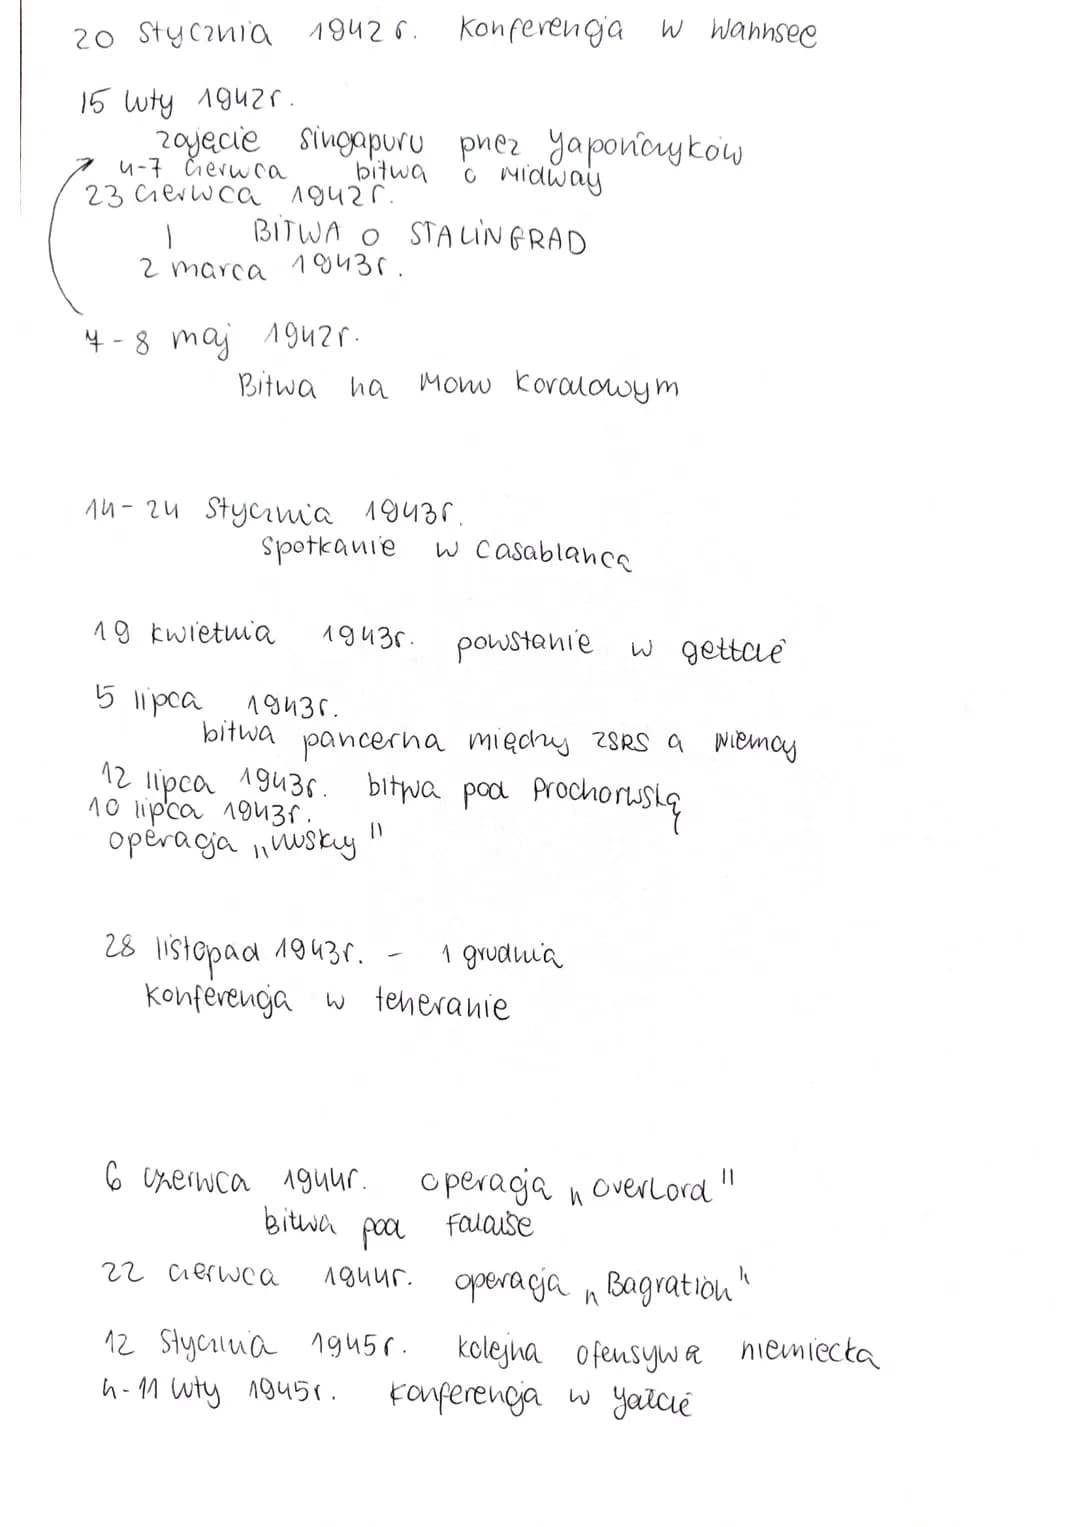 20 Stycznia 1942 r. Konferencja w Wannsee
15 luty 1942r.
zajęcie Singapuru przez Yapończyków
4-7 czerwca bitwa o Midway
23 czerwca 1942r.
| BITWA O STALINGRAD
2 marca 1943r.
7-8 maj 1942r.
Bitwa na Morzu Koralowym
14-24 Stycznia 1943r.
Spotkanie w Casablance
19 kwietnia 1943r. powstanie w gettcie
5 lipca 1943r.
bitwa pancerna między ZSRS a Niemcy
12 lipca 1943r. bitwa pod Prochorwską
10 lipca 1943r.
operacja „Husky"
28 listopad 1943r. - 1 grudnia
Konferencja w teheranie
6 czerwca 1944r. operacja „Overlord"
Bitwa pod Falaise
22 czerwca 1944r. operacja „Bagration"
12 Stycznia 1945r. kolejna ofensywa niemiecka
4-11 luty 1945r. Konferencja w Yałcie